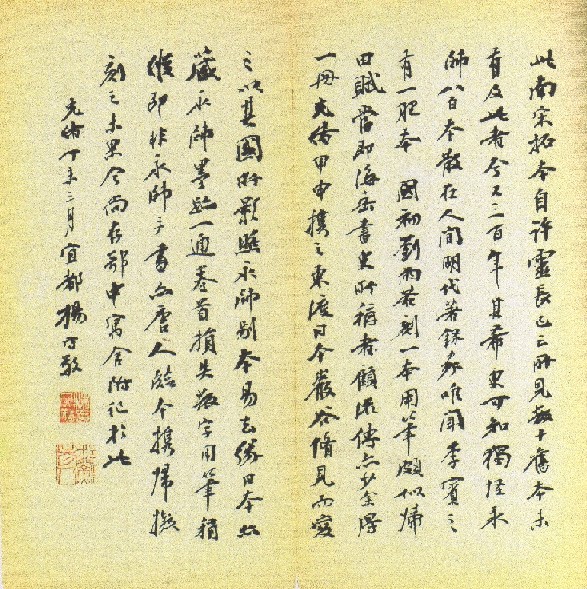 此南宋拓本自許靈長已云所見數十舊本未
有及此者今又三百年其希更可知獨怪永
師八百本散在人間明代著錄家唯聞李賓之
有一肥本國初劉雨若刻一本用筆頗似歸
田賦當即海岳書史所稱者顧流傳亦少余得
一冊光緒甲申攜之東渡日本巖谷脩見而愛
之以其國所影照永師別本易去緣日本亦
藏永師墨跡一通卷首損失數字用筆稍
後即非永師手書亦唐人臨本攜歸擬
刻之未果今尚在鄂中寓舍附記於此
光緒丁未三月宜都楊守敬